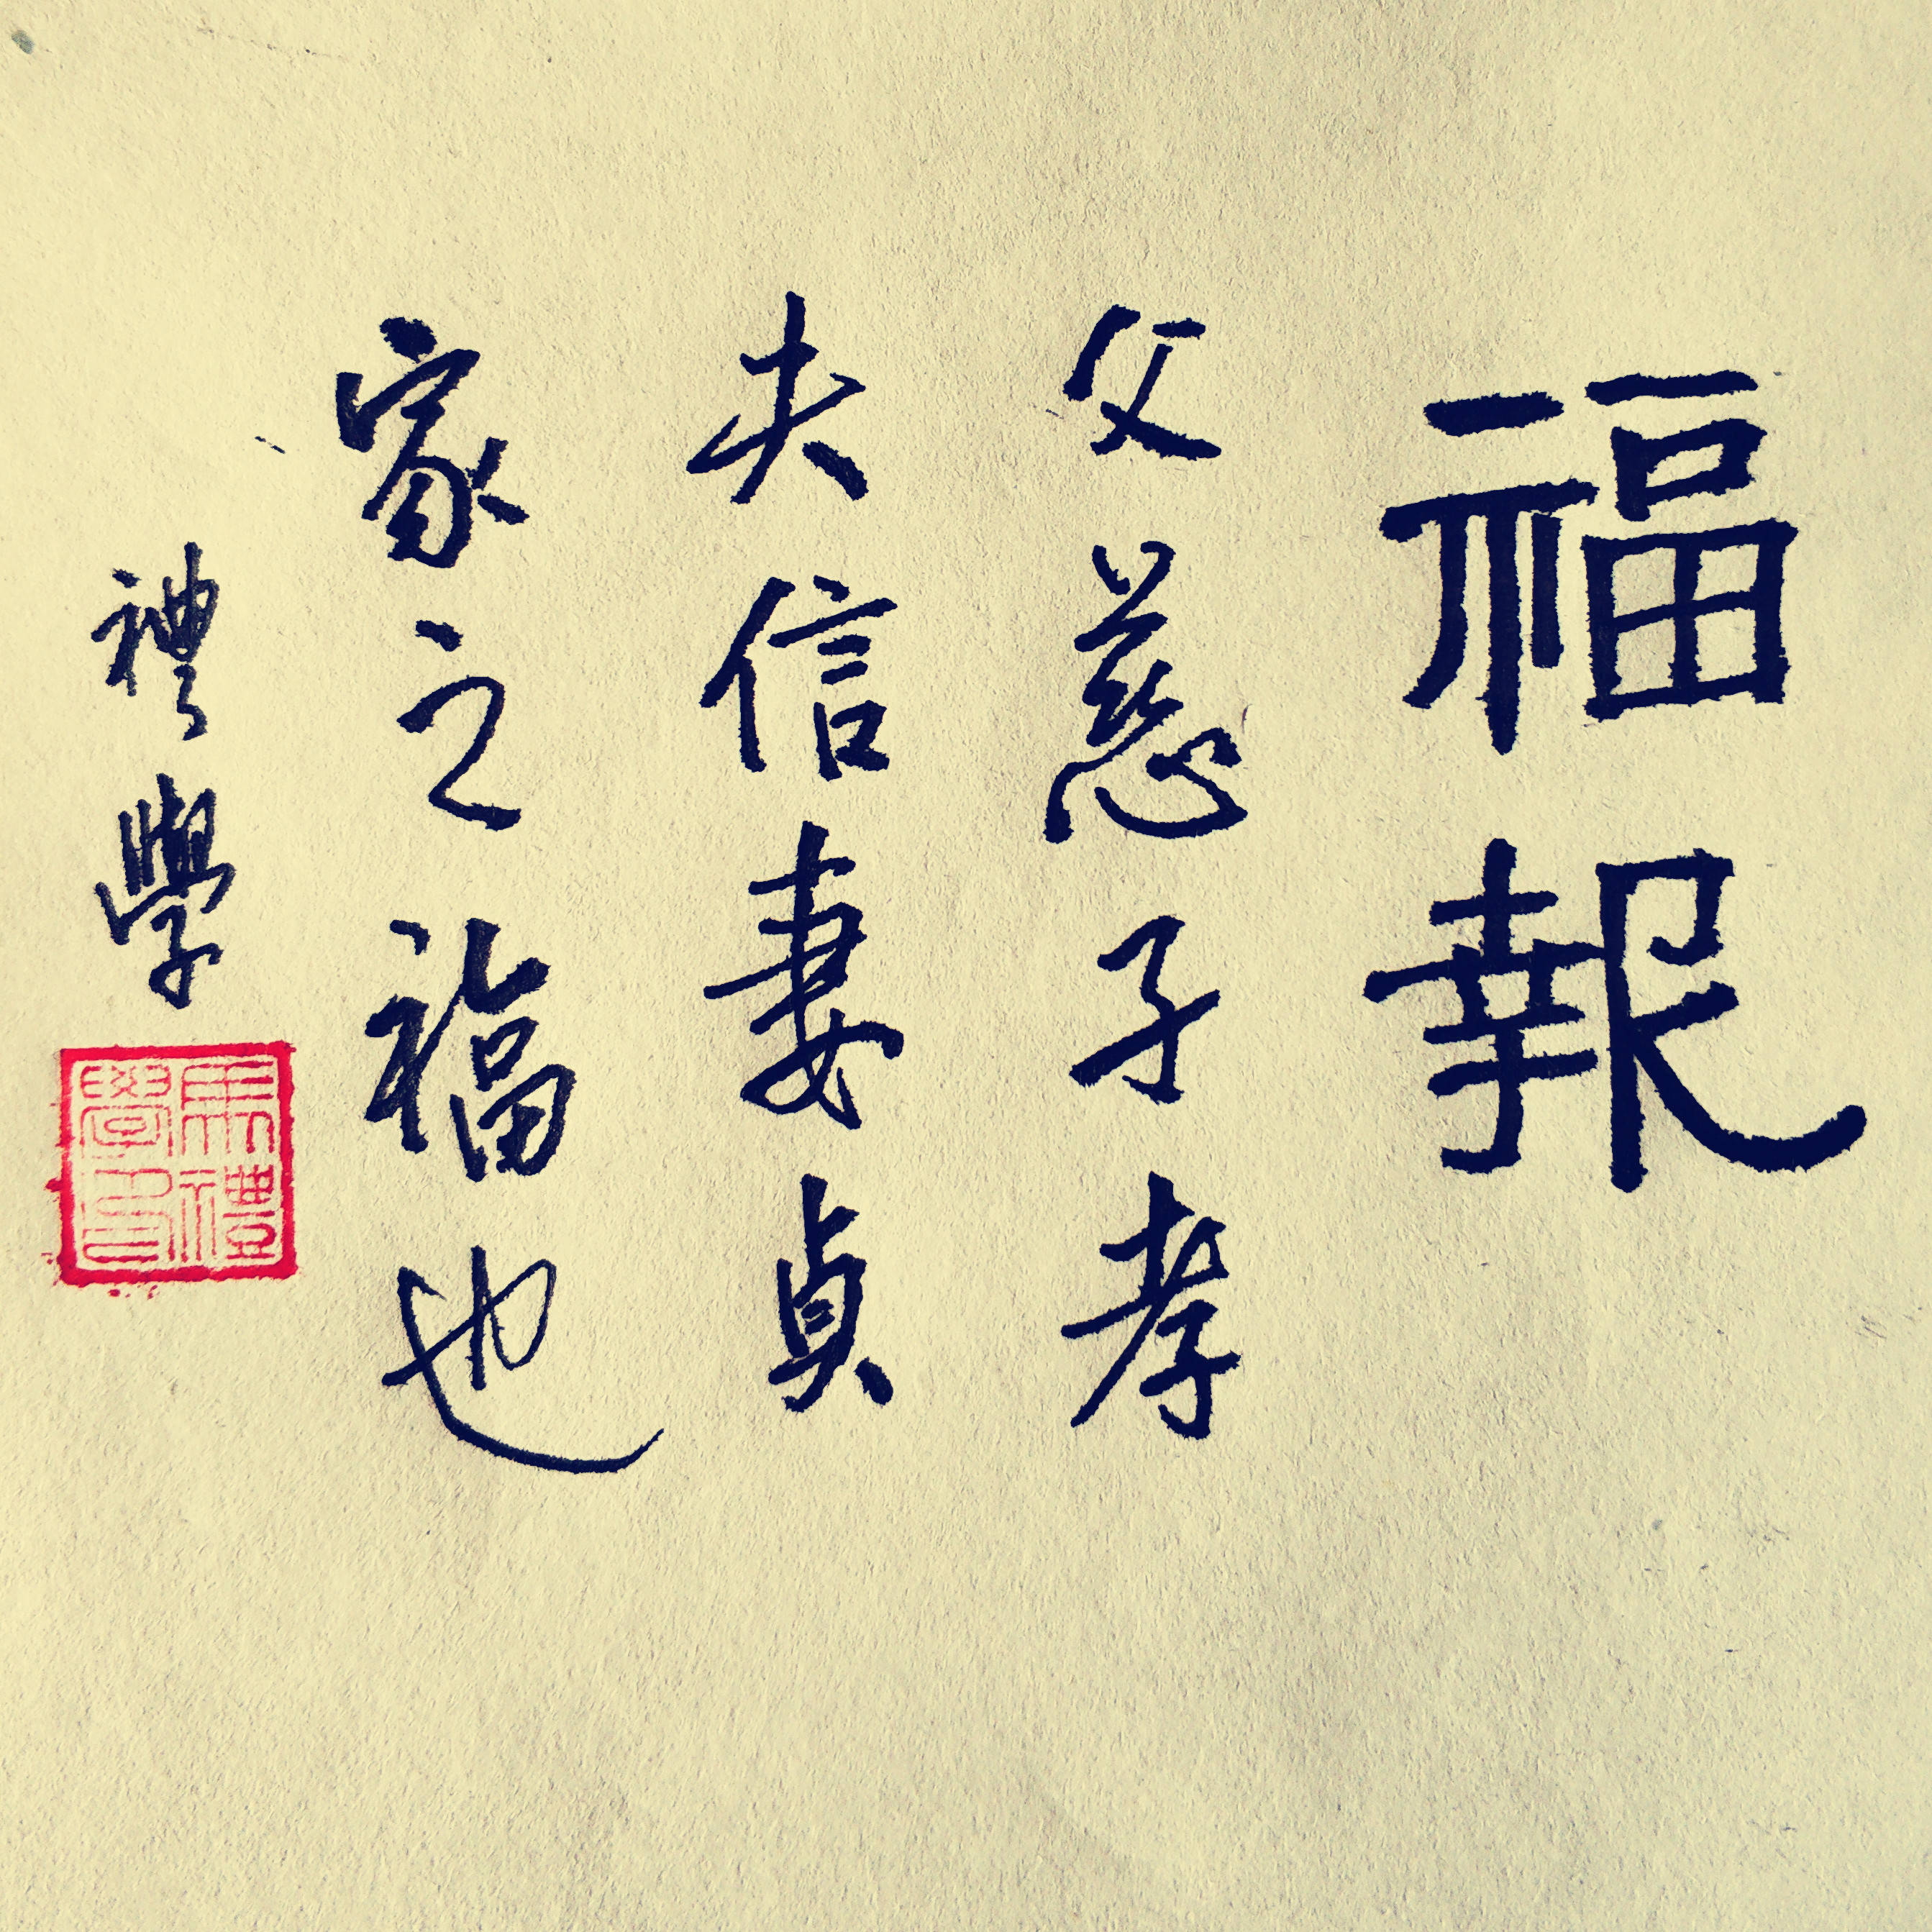 福報
父慈子孝
夫信妻貞
家之福也
禮學
禮學印